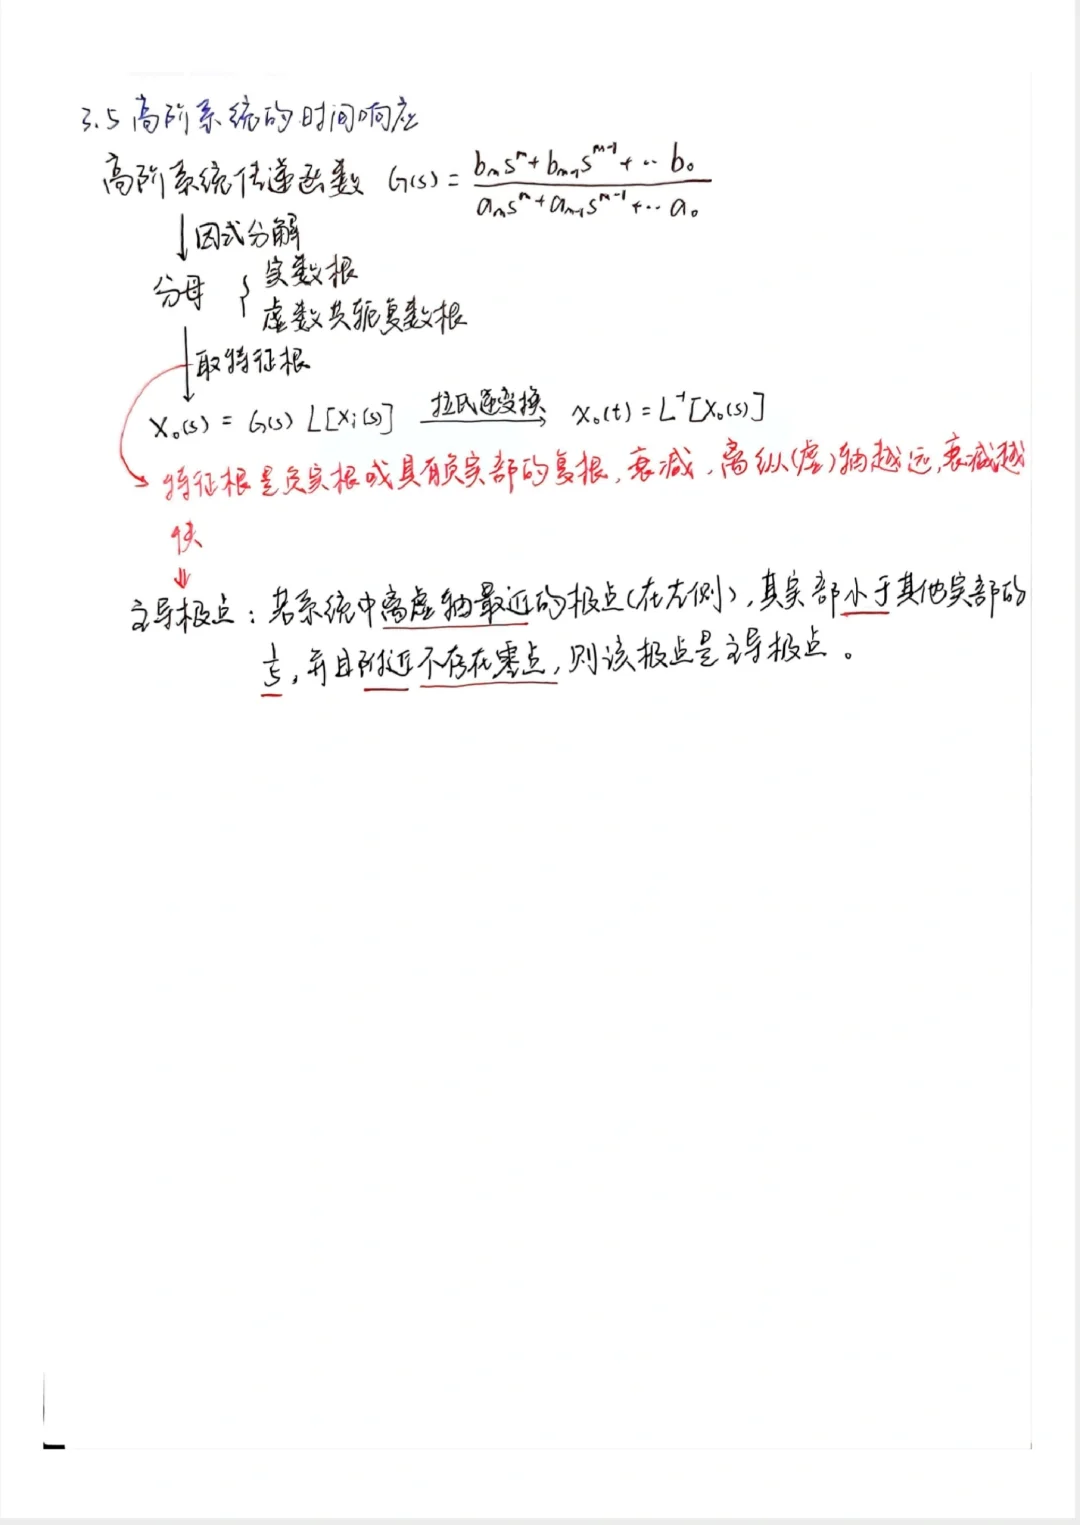 3.5 高阶系统的时间响应
高阶系统传递函数 G(s) = (bₘsᵐ + bₘ₋₁sᵐ⁻¹ + ·· b₀) / (aₙsⁿ + aₙ₋₁sⁿ⁻¹ + ·· a₀)
↓因式分解
分母 { 实数根
虚数共轭复数根
↓取特征根
X₀(s) = G(s) L[Xi(s)] 拉氏逆变换→ x₀(t) = L⁻¹[X₀(s)]
特征根是负实根或具有负实部的复根, 衰减, 离纵(虚)轴越远, 衰减越
快
⇓
主导极点: 若系统中离虚轴最近的极点(在左侧), 其实部小于其他实部的
1/5, 并且附近不存在零点, 则该极点是主导极点。